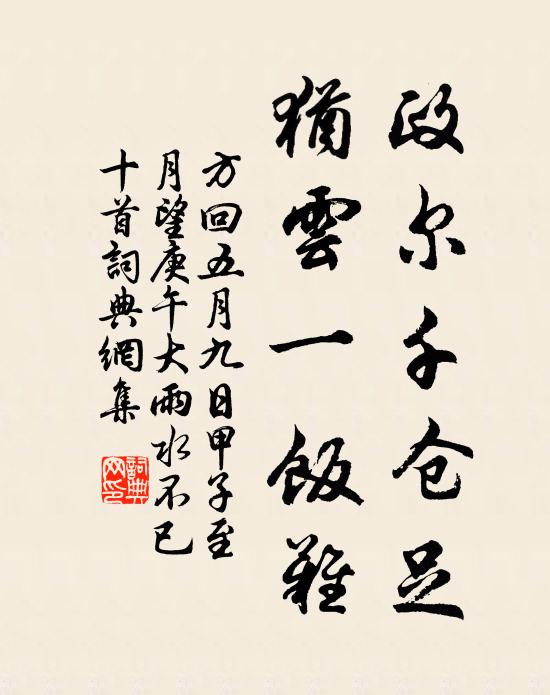 政尔千仓足
猶雲一飯難
方回五月九日甲子至
月望庚午大雨水不已
十首詞典網集
詞典网印